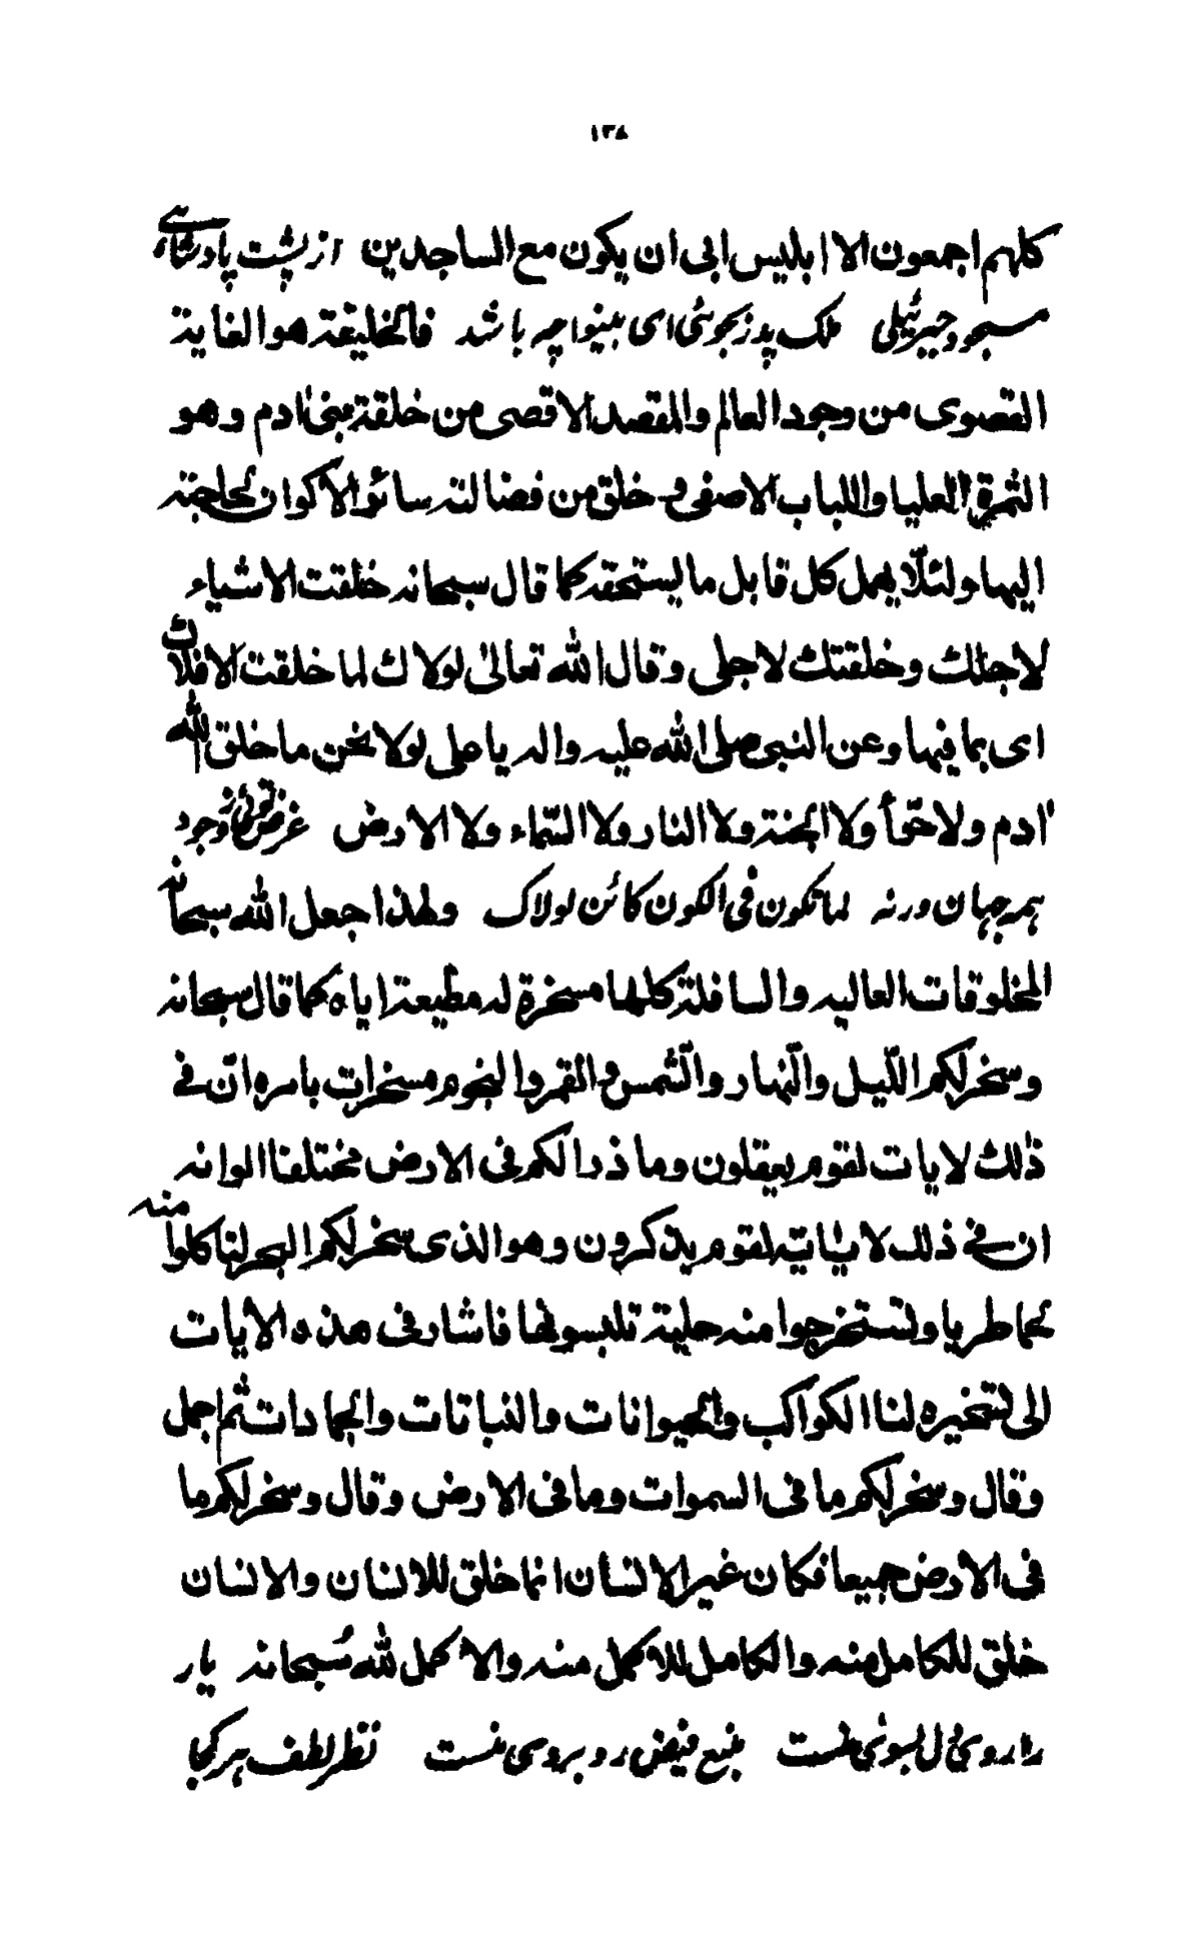 ١٣٨
كلهم اجمعون الا ابليس ابى ان يكون مع الساجدين از پشت پادشاهى
مسجود جبرئيلى ملك پدر بجوئى اى بينوا چه باشد فالخليقة هو الغاية
القصوى من وجود العالم والمقصد الاقصى من خلقة بنى ادم وهو
الثمرة العليا واللباب الاصفى وخلق من فضالته سائر الاكوان لحاجته
اليها ولئلّا يهمل كل قابل ما يستحقه كما قال سبحانه خلقت الاشياء
لاجلك وخلقتك لاجلى وقال الله تعالى لولاك لما خلقت الافلاك
اى بما فيها وعن النبى صلى الله عليه واله يا على لولا نحن ما خلق الله
ادم ولا حوّا ولا الجنة ولا النار ولا السّماء ولا الارض غرض توئى ز وجود
همه جهان ورنه لما تكون فى الكون كائن لولاك ولهذا جعل الله سبحانه
المخلوقات العاليه والسافلة كلها مسخرة له مطيعة اياه كما قال سبحانه
وسخر لكم اللّيل والنّهار والشّمس والقمر والنجوم مسخرات بامره انّ فى
ذلك لايات لقوم يعقلون وما ذرا لكم فى الارض مختلفا الوانه
ان فى ذلك لاية لقوم يذكرون وهو الذى سخر لكم البحر لتاكلوا منه
لحما طريا ولتستخرجوا منه حلية تلبسونها فاشار فى هذه الايات
الى تسخيره لنا الكواكب والحيوانات والنباتات والجمادات ثم اجمل
وقال وسخر لكم ما فى السموات وما فى الارض وقال وسخر لكم ما
فى الارض جميعا فكان غير الانسان انما خلق للانسان والانسان
خلق للكامل منه والكامل للاكمل منه والاكمل لله سُبحانه يار
را روى دل بسوى منست منبع فيض رو بروى منست نظر لطف هر كجا